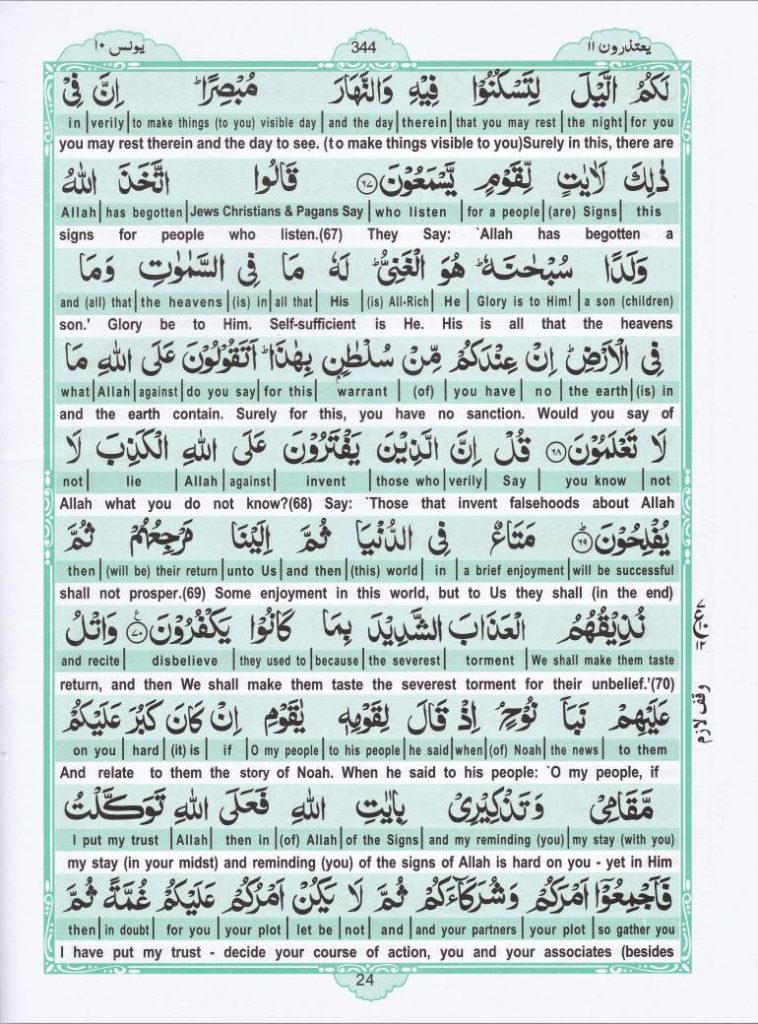 یونس ۱۰
344
یعتذرون ۱۱
لَكُمُ الَّيْلَ لِتَسْكُنُوْا فِيْهِ وَالنَّهَارَ مُبْصِرًا ؕ اِنَّ فِيْ
in | verily | to make things (to you) visible day | and the day | therein | that you may rest | the night | for you
you may rest therein and the day to see. (to make things visible to you)Surely in this, there are
ذٰلِكَ لَاٰيٰتٍ لِّقَوْمٍ يَّسْمَعُوْنَ ﴿۶۷﴾ قَالُوا اتَّخَذَ اللّٰهُ
Allah | has begotten | Jews Christians & Pagans Say | who listen | for a people | (are) Signs | this
signs for people who listen.(67) They Say: `Allah has begotten a
وَلَدًا سُبْحٰنَهٗ ؕ هُوَ الْغَنِيُّ ؕ لَهٗ مَا فِى السَّمٰوٰتِ وَمَا
and (all) that | the heavens | (is) in | all that | His | (is) All-Rich | He | Glory is to Him! | a son (children)
son.' Glory be to Him. Self-sufficient is He. His is all that the heavens
فِى الْاَرْضِ ؕ اِنْ عِنْدَكُمْ مِّنْ سُلْطٰنٍۭ بِهٰذَا ؕ اَتَقُوْلُوْنَ عَلَى اللّٰهِ مَا
what | Allah | against | do you say | for this | warrant | (of) | you have | no | the earth | (is) in
and the earth contain. Surely for this, you have no sanction. Would you say of
لَا تَعْلَمُوْنَ ﴿۶۸﴾ قُلْ اِنَّ الَّذِيْنَ يَفْتَرُوْنَ عَلَى اللّٰهِ الْكَذِبَ لَا
not | lie | Allah | against | invent | those who | verily | Say | you know | not
Allah what you do not know?(68) Say: `Those that invent falsehoods about Allah
يُفْلِحُوْنَ ﴿ؕ۶۹﴾ مَتَاعٌ فِى الدُّنْيَا ثُمَّ اِلَيْنَا مَرْجِعُهُمْ ثُمَّ
then | (will be) their return | unto Us | and then | (this) world | in | a brief enjoyment | will be successful
shall not prosper.(69) Some enjoyment in this world, but to Us they shall (in the end)
نُذِيْقُهُمُ الْعَذَابَ الشَّدِيْدَ بِمَا كَانُوْا يَكْفُرُوْنَ ﴿۷۰﴾ ع وَاتْلُ
and recite | disbelieve | they used to | because | the severest | torment | We shall make them taste
return, and then We shall make them taste the severest torment for their unbelief.'(70)
عَلَيْهِمْ نَبَاَ نُوْحٍ ۘ اِذْ قَالَ لِقَوْمِهٖ يٰقَوْمِ اِنْ كَانَ كَبُرَ عَلَيْكُمْ
on you | hard | (it) is | if | O my people | to his people | he said | when | (of) Noah | the news | to them
And relate to them the story of Noah. When he said to his people: `O my people, if
مَّقَامِيْ وَتَذْكِيْرِيْ بِاٰيٰتِ اللّٰهِ فَعَلَى اللّٰهِ تَوَكَّلْتُ
I put my trust | Allah | then in | (of) Allah | of the Signs | and my reminding (you) | my stay (with you)
my stay (in your midst) and reminding (you) of the signs of Allah is hard on you - yet in Him
فَاَجْمِعُوْۤا اَمْرَكُمْ وَشُرَكَآءَكُمْ ثُمَّ لَا يَكُنْ اَمْرُكُمْ عَلَيْكُمْ غُمَّةً ثُمَّ
then | in doubt | for you | your plot | let be | not | and | and your partners | your plot | so gather you
I have put my trust - decide your course of action, you and your associates (besides
ع
وقف لازم
24